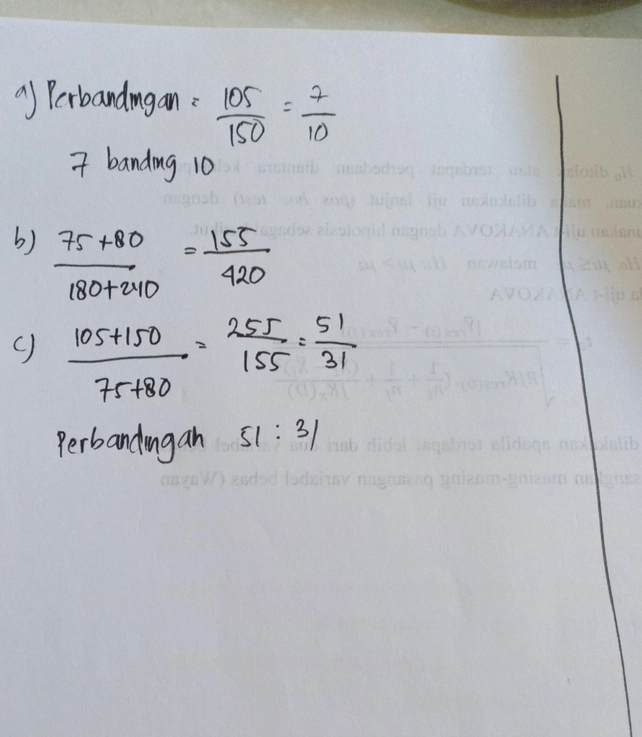 a) Perbandingan = 105/150 = 7/10
7 banding 10
b) 75+80/180+240 = 155/420
c) 105+150/75+80 = 255/155 = 51/31
Perbandingan 51 : 31